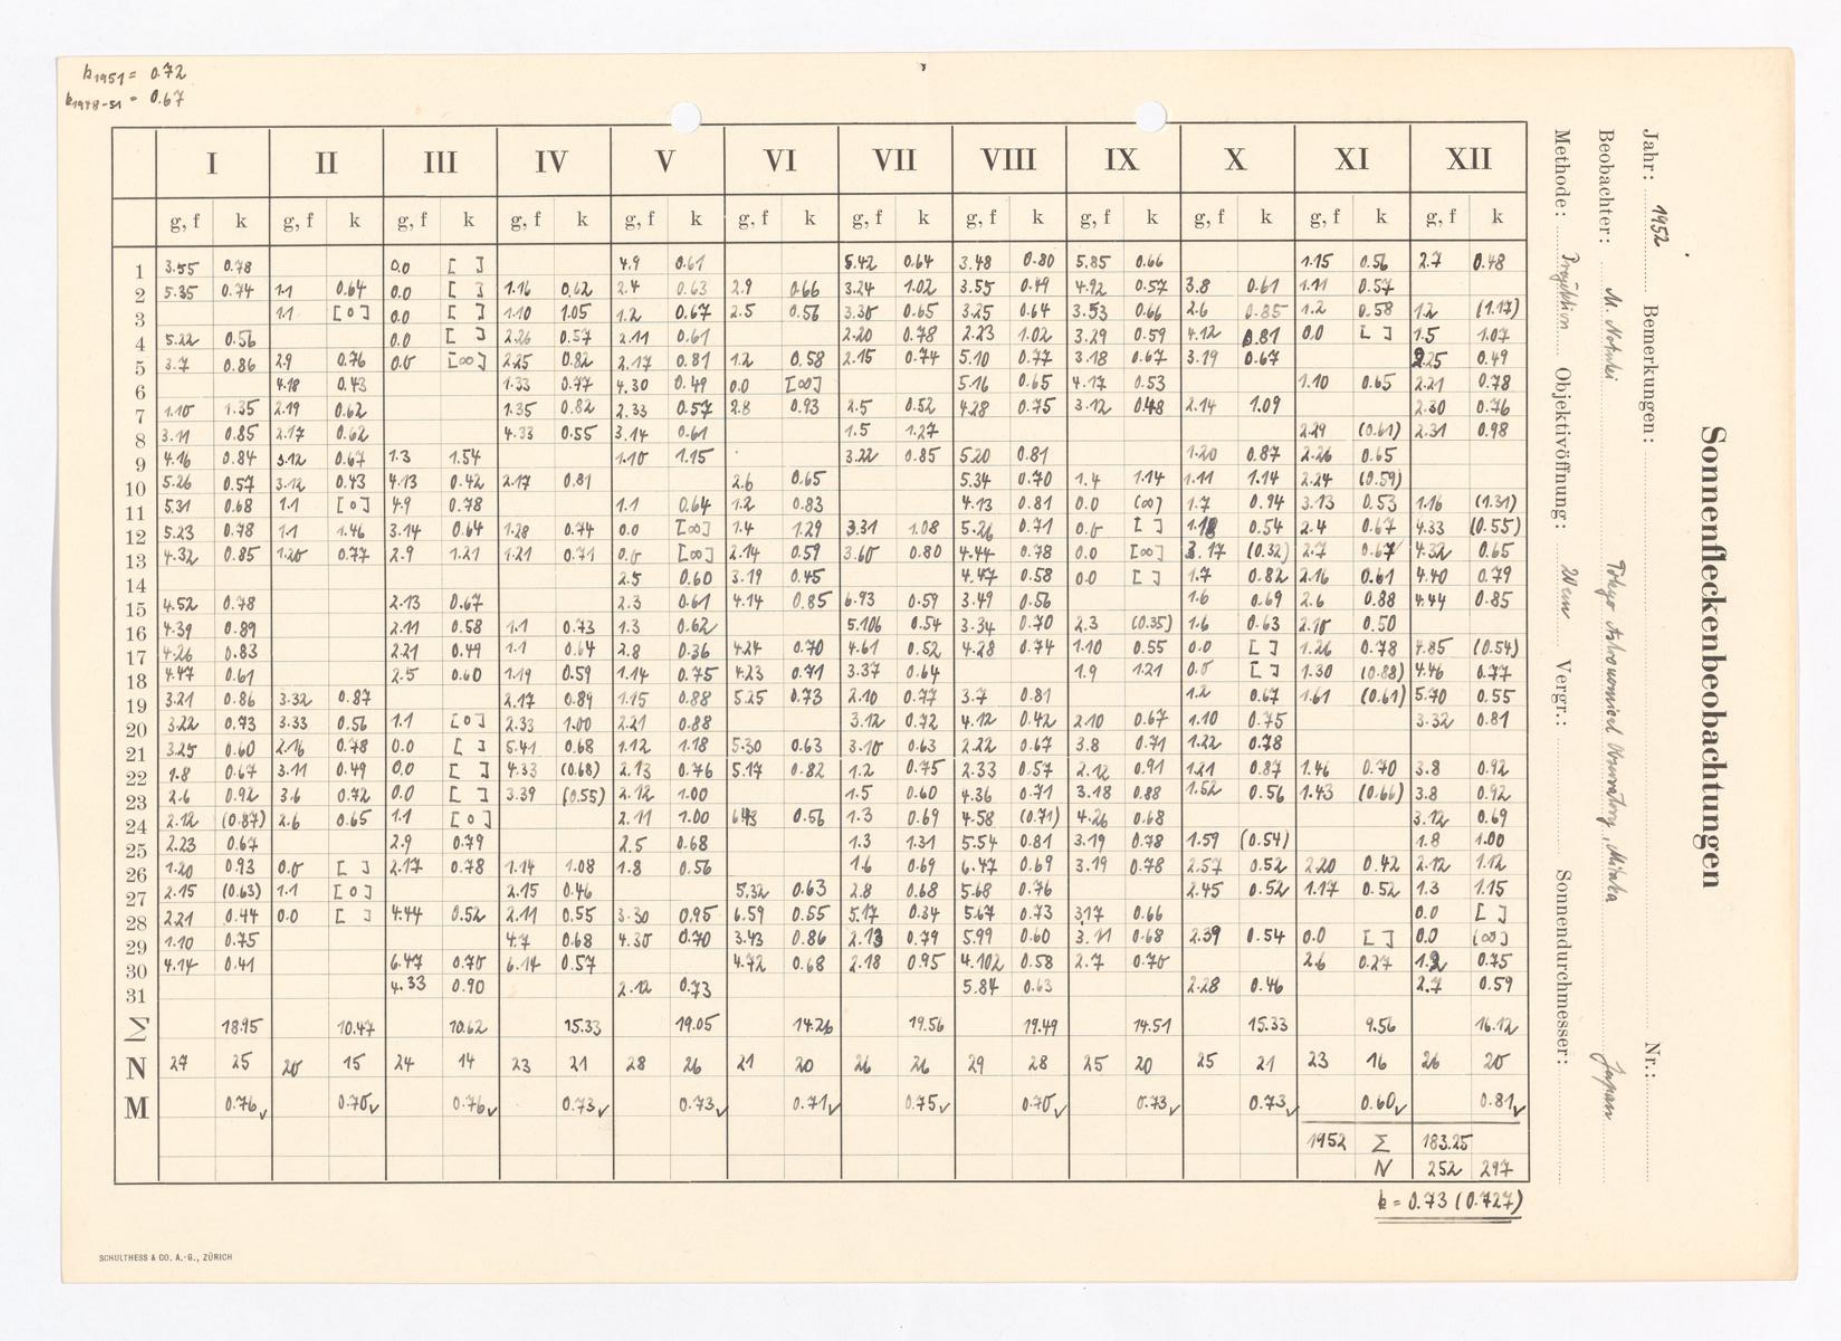 k1951 = 0.72
k1948-51 = 0.67
Sonnenfleckenbeobachtungen
Jahr: 1952 Bemerkungen: Nr.:
Beobachter: Tokyo Astronomical Observatory, Mitaka Japan
Methode: Projektion Objektivöffnung: 20 cm Vergr.: Sonnendurchmesser:
I II III IV V VI VII VIII IX X XI XII
g, f k g, f k g, f k g, f k g, f k g, f k g, f k g, f k g, f k g, f k g, f k g, f k
1 3.55 0.78 0.0 [ ] 4.9 0.61 5.42 0.64 3.48 0.80 5.85 0.66 1.15 0.56 2.7 0.48
2 5.35 0.74 1.1 0.64 0.0 [ ] 1.16 0.62 2.4 0.63 2.9 0.66 3.24 1.02 3.55 0.49 4.92 0.57 3.8 0.61 1.11 0.57
3 1.1 [0] 0.0 [ ] 1.10 1.05 1.2 0.67 2.5 0.56 3.30 0.65 3.25 0.64 3.53 0.66 2.6 0.85 1.2 0.58 1.2 (1.17)
4 5.22 0.56 0.0 [ ] 2.26 0.57 2.11 0.61 2.20 0.78 2.23 1.02 3.29 0.59 4.12 0.81 0.0 [ ] 1.5 1.07
5 3.7 0.86 2.9 0.76 0.0 [∞] 2.25 0.82 2.17 0.81 1.2 0.58 2.15 0.74 5.10 0.77 3.18 0.67 3.19 0.67 2.25 0.49
6 4.18 0.43 1.33 0.77 4.30 0.49 0.0 [∞] 5.16 0.65 4.17 0.53 1.10 0.65 2.21 0.78
7 1.10 1.35 2.19 0.62 1.35 0.82 2.33 0.57 2.8 0.93 2.5 0.52 4.28 0.75 3.12 0.48 2.14 1.09 2.30 0.76
8 3.11 0.85 2.17 0.62 4.33 0.55 3.14 0.61 1.5 1.27 2.29 (0.61) 2.31 0.98
9 4.16 0.84 3.12 0.67 1.3 1.54 1.10 1.15 3.22 0.85 5.20 0.81 1.20 0.87 2.26 0.65
10 5.26 0.57 3.12 0.43 4.13 0.42 2.17 0.81 2.6 0.65 5.34 0.70 1.4 1.14 1.11 1.14 2.24 (0.59)
11 5.31 0.68 1.1 [0] 4.9 0.78 1.1 0.64 1.2 0.83 4.13 0.81 0.0 (∞] 1.7 0.94 3.13 0.53 1.16 (1.31)
12 5.23 0.78 1.1 1.46 3.14 0.64 1.28 0.74 0.0 [∞] 1.4 1.29 3.31 1.08 5.26 0.71 0.0 [ ] 1.18 0.54 2.4 0.67 4.33 (0.55)
13 4.32 0.85 1.20 0.77 2.9 1.21 1.21 0.71 0.0 [∞] 2.14 0.59 3.60 0.80 4.44 0.78 0.0 [∞] 3.17 (0.32) 2.7 0.67 4.32 0.65
14 2.5 0.60 3.19 0.45 4.47 0.58 0.0 [ ] 1.7 0.82 2.16 0.61 4.40 0.79
15 4.52 0.78 2.13 0.67 2.3 0.61 4.14 0.85 6.93 0.59 3.49 0.56 1.6 0.69 2.6 0.88 4.44 0.85
16 4.39 0.89 2.11 0.58 1.1 0.73 1.3 0.62 5.106 0.54 3.34 0.70 2.3 (0.35) 1.6 0.63 2.10 0.50
17 4.26 0.83 2.21 0.49 1.1 0.64 2.8 0.36 4.24 0.70 4.61 0.52 4.28 0.74 1.10 0.55 0.0 [ ] 1.26 0.78 4.85 (0.54)
18 4.47 0.61 2.5 0.60 1.19 0.59 1.14 0.75 4.23 0.71 3.37 0.64 1.9 1.21 0.0 [ ] 1.30 (0.88) 4.46 0.77
19 3.21 0.86 3.32 0.87 2.17 0.89 1.15 0.88 5.25 0.73 2.10 0.77 3.7 0.81 1.2 0.67 1.61 (0.61) 5.70 0.55
20 3.22 0.73 3.33 0.56 1.1 [0] 2.33 1.00 2.21 0.88 3.12 0.72 4.12 0.42 2.10 0.67 1.10 0.75 3.32 0.81
21 3.25 0.60 2.16 0.78 0.0 [ ] 5.41 0.68 1.12 1.18 5.30 0.63 3.10 0.63 2.22 0.67 3.8 0.71 1.22 0.78
22 1.8 0.67 3.11 0.49 0.0 [ ] 4.33 (0.68) 2.13 0.76 5.17 0.82 1.2 0.75 2.33 0.57 2.12 0.91 1.21 0.87 1.46 0.70 3.8 0.92
23 2.6 0.92 3.6 0.72 0.0 [ ] 3.39 (0.55) 2.12 1.00 1.5 0.60 4.36 0.71 3.18 0.88 1.52 0.56 1.43 (0.66) 3.8 0.92
24 2.12 (0.87) 2.6 0.65 1.1 [0] 2.11 1.00 6.43 0.56 1.3 0.69 4.58 (0.71) 4.26 0.68 3.12 0.69
25 2.23 0.67 2.9 0.79 2.5 0.68 1.3 1.31 5.54 0.81 3.19 0.78 1.59 (0.54) 1.8 1.00
26 1.20 0.93 0.0 [ ] 2.17 0.78 1.14 1.08 1.8 0.56 1.6 0.69 6.47 0.69 3.19 0.78 2.57 0.52 2.20 0.42 2.12 1.12
27 2.15 (0.63) 1.1 [0] 2.15 0.46 5.32 0.63 2.8 0.68 5.68 0.76 2.45 0.52 1.17 0.52 1.3 1.15
28 2.21 0.44 0.0 [ ] 4.44 0.52 2.11 0.55 3.30 0.95 6.59 0.55 5.17 0.34 5.67 0.73 3.17 0.66 0.0 [ ]
29 1.10 0.75 4.7 0.68 4.30 0.70 3.43 0.86 2.13 0.79 5.99 0.60 3.11 0.68 2.39 0.54 0.0 [ ] 0.0 (∞]
30 4.14 0.41 6.47 0.70 6.14 0.57 4.72 0.68 2.18 0.95 4.102 0.58 2.7 0.70 2.6 0.27 1.2 0.75
31 4.33 0.90 2.12 0.73 5.84 0.63 2.28 0.46 2.7 0.59
Σ 18.95 10.47 10.62 15.33 19.05 14.26 19.56 19.49 14.51 15.33 9.56 16.12
N 27 25 20 15 24 14 23 21 28 26 21 20 26 26 29 28 25 20 25 21 23 16 26 20
M 0.76✓ 0.70✓ 0.76✓ 0.73✓ 0.73✓ 0.71✓ 0.75✓ 0.70✓ 0.73✓ 0.73✓ 0.60✓ 0.81✓
1952 Σ 183.25
N 252 297
k = 0.73 (0.727)
SCHULTHESS & CO. A.-G., ZÜRICH